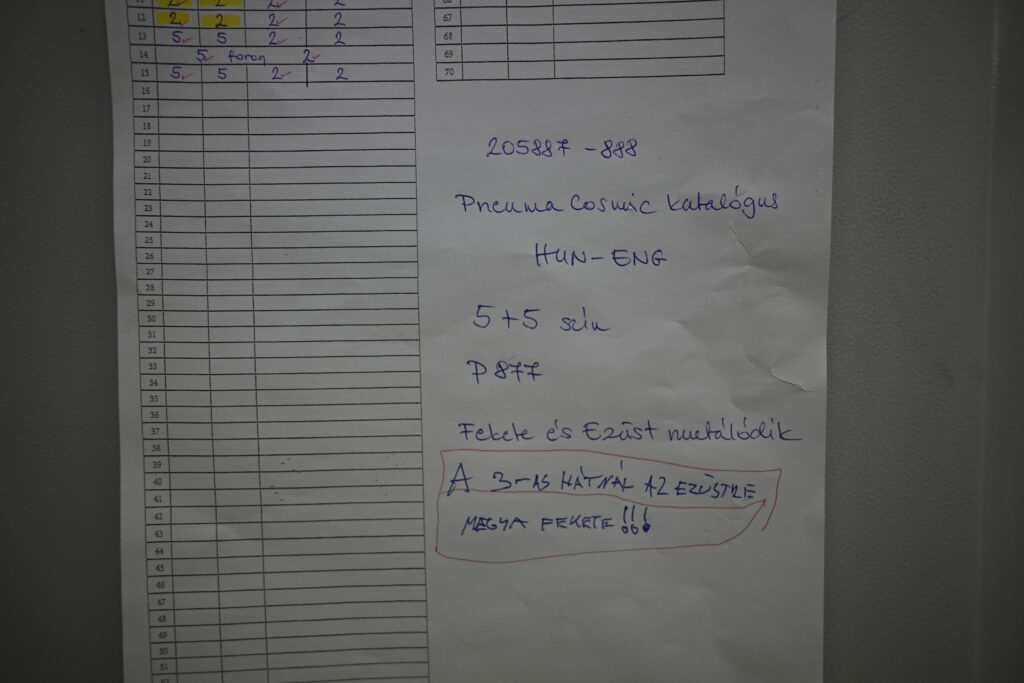 12 2 2 2 2
13 5 5 2 2
14 5 foron 2
15 5 5 2 2
16
17
18
19
20
21
22
23
24
25
26
27
28
29
30
31
32
33
34
35
36
37
38
39
40
41
42
43
44
45
46
47
48
49
50
51
67
68
69
70
205887 - 888
Pneuma Cosmic katalógus
HUN - ENG
5 + 5 szín
P 877
Fekete és Ezüst nuetálódik
A 3-AS HÁTNÁL AZ EZÜSTRE
MEGYA FEKETE!!!